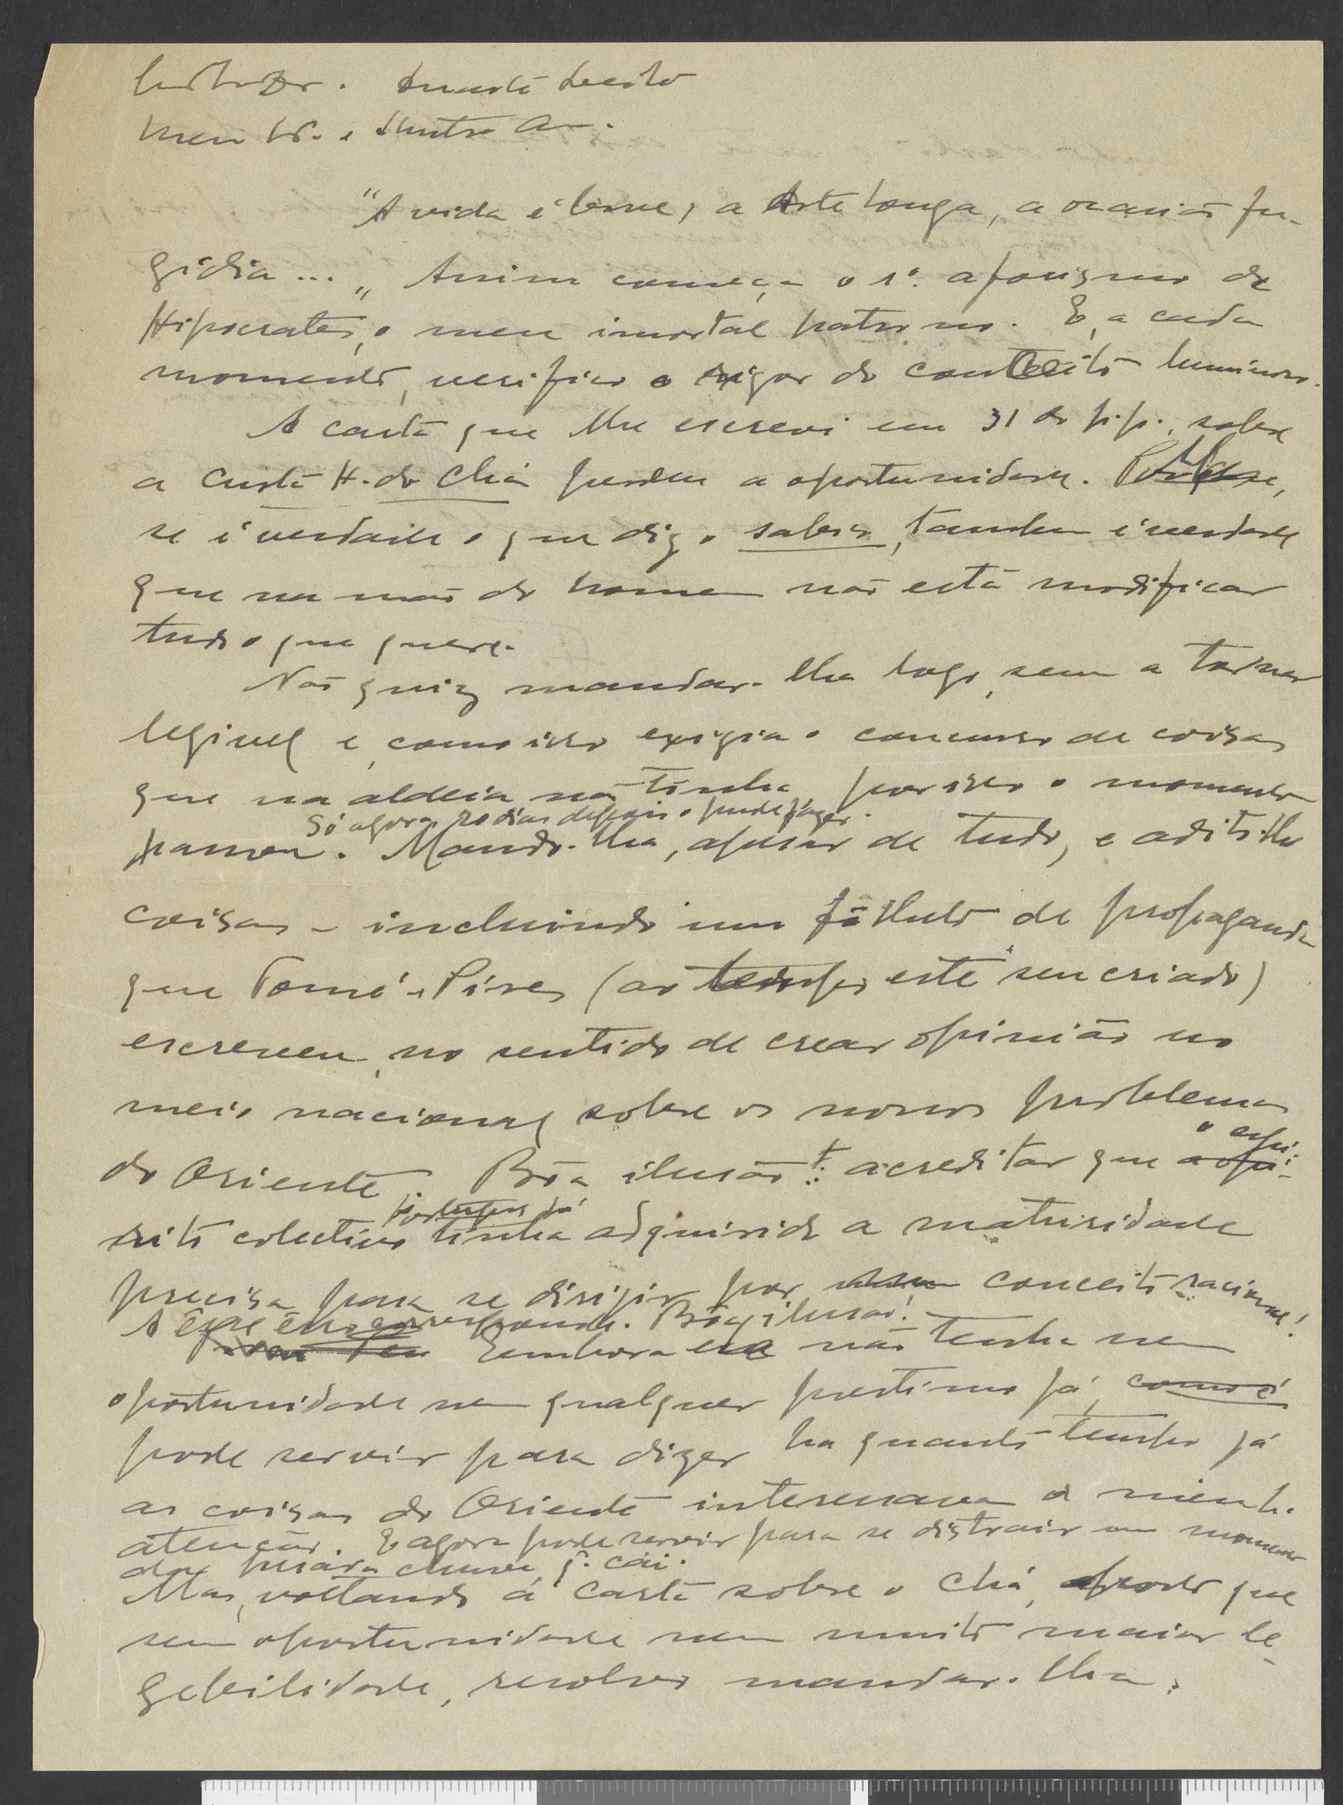 Meu
"A vida é breve, a Arte longa, a ocasião fu-
gidia... „ Assim começa o 1º. aforismo de
Hipocrates, o meu imortal patrono. E, a cada
momento, verifico o rigor do conceito luminoso.
A carta que lhe escrevi em 31 do p.p., sobre
a Curta H. do Chá perdeu a oportunidade.
se é verdade o que diz o saber, tambem é verdade
que na mão do homem não está modificar
tudo o que quere.
Não quiz mandar-lha logo, sem a tornar
legivel e, como isso exigia o concurso de coisas
que na aldeia não tinha, por isso o momento
Só agora, 20 dias depois o pude fazer.
passou. Mando-lha, apesar de tudo, e adito-lhe
coisas - incluindo um folheto de propaganda
que Tomé Pires (ao tempo este seu criado)
escreveu, no sentido de crear opinião no
meio nacional sobre os nossos problemas
do Oriente. Bôa ilusão!: acreditar que o espi-
rito colectivo português já tinha adquirido a maturidade
precisa para se dirigir por conceito racional!
Bôa ilusão!
Embora não tenha nem
oportunidade nem qualquer prestimo já, como é
pode servir para dizer ha quanto tempo já
as coisas do Oriente interessavam a minh.
atenção. E agora pode servir para se distrair um momento
da pesada chuva q. cái.
Mas, voltando á carta sobre o Chá, aposto que
sem oportunidade nem muito maior le-
gebilidade, resolvo mandar-lha;